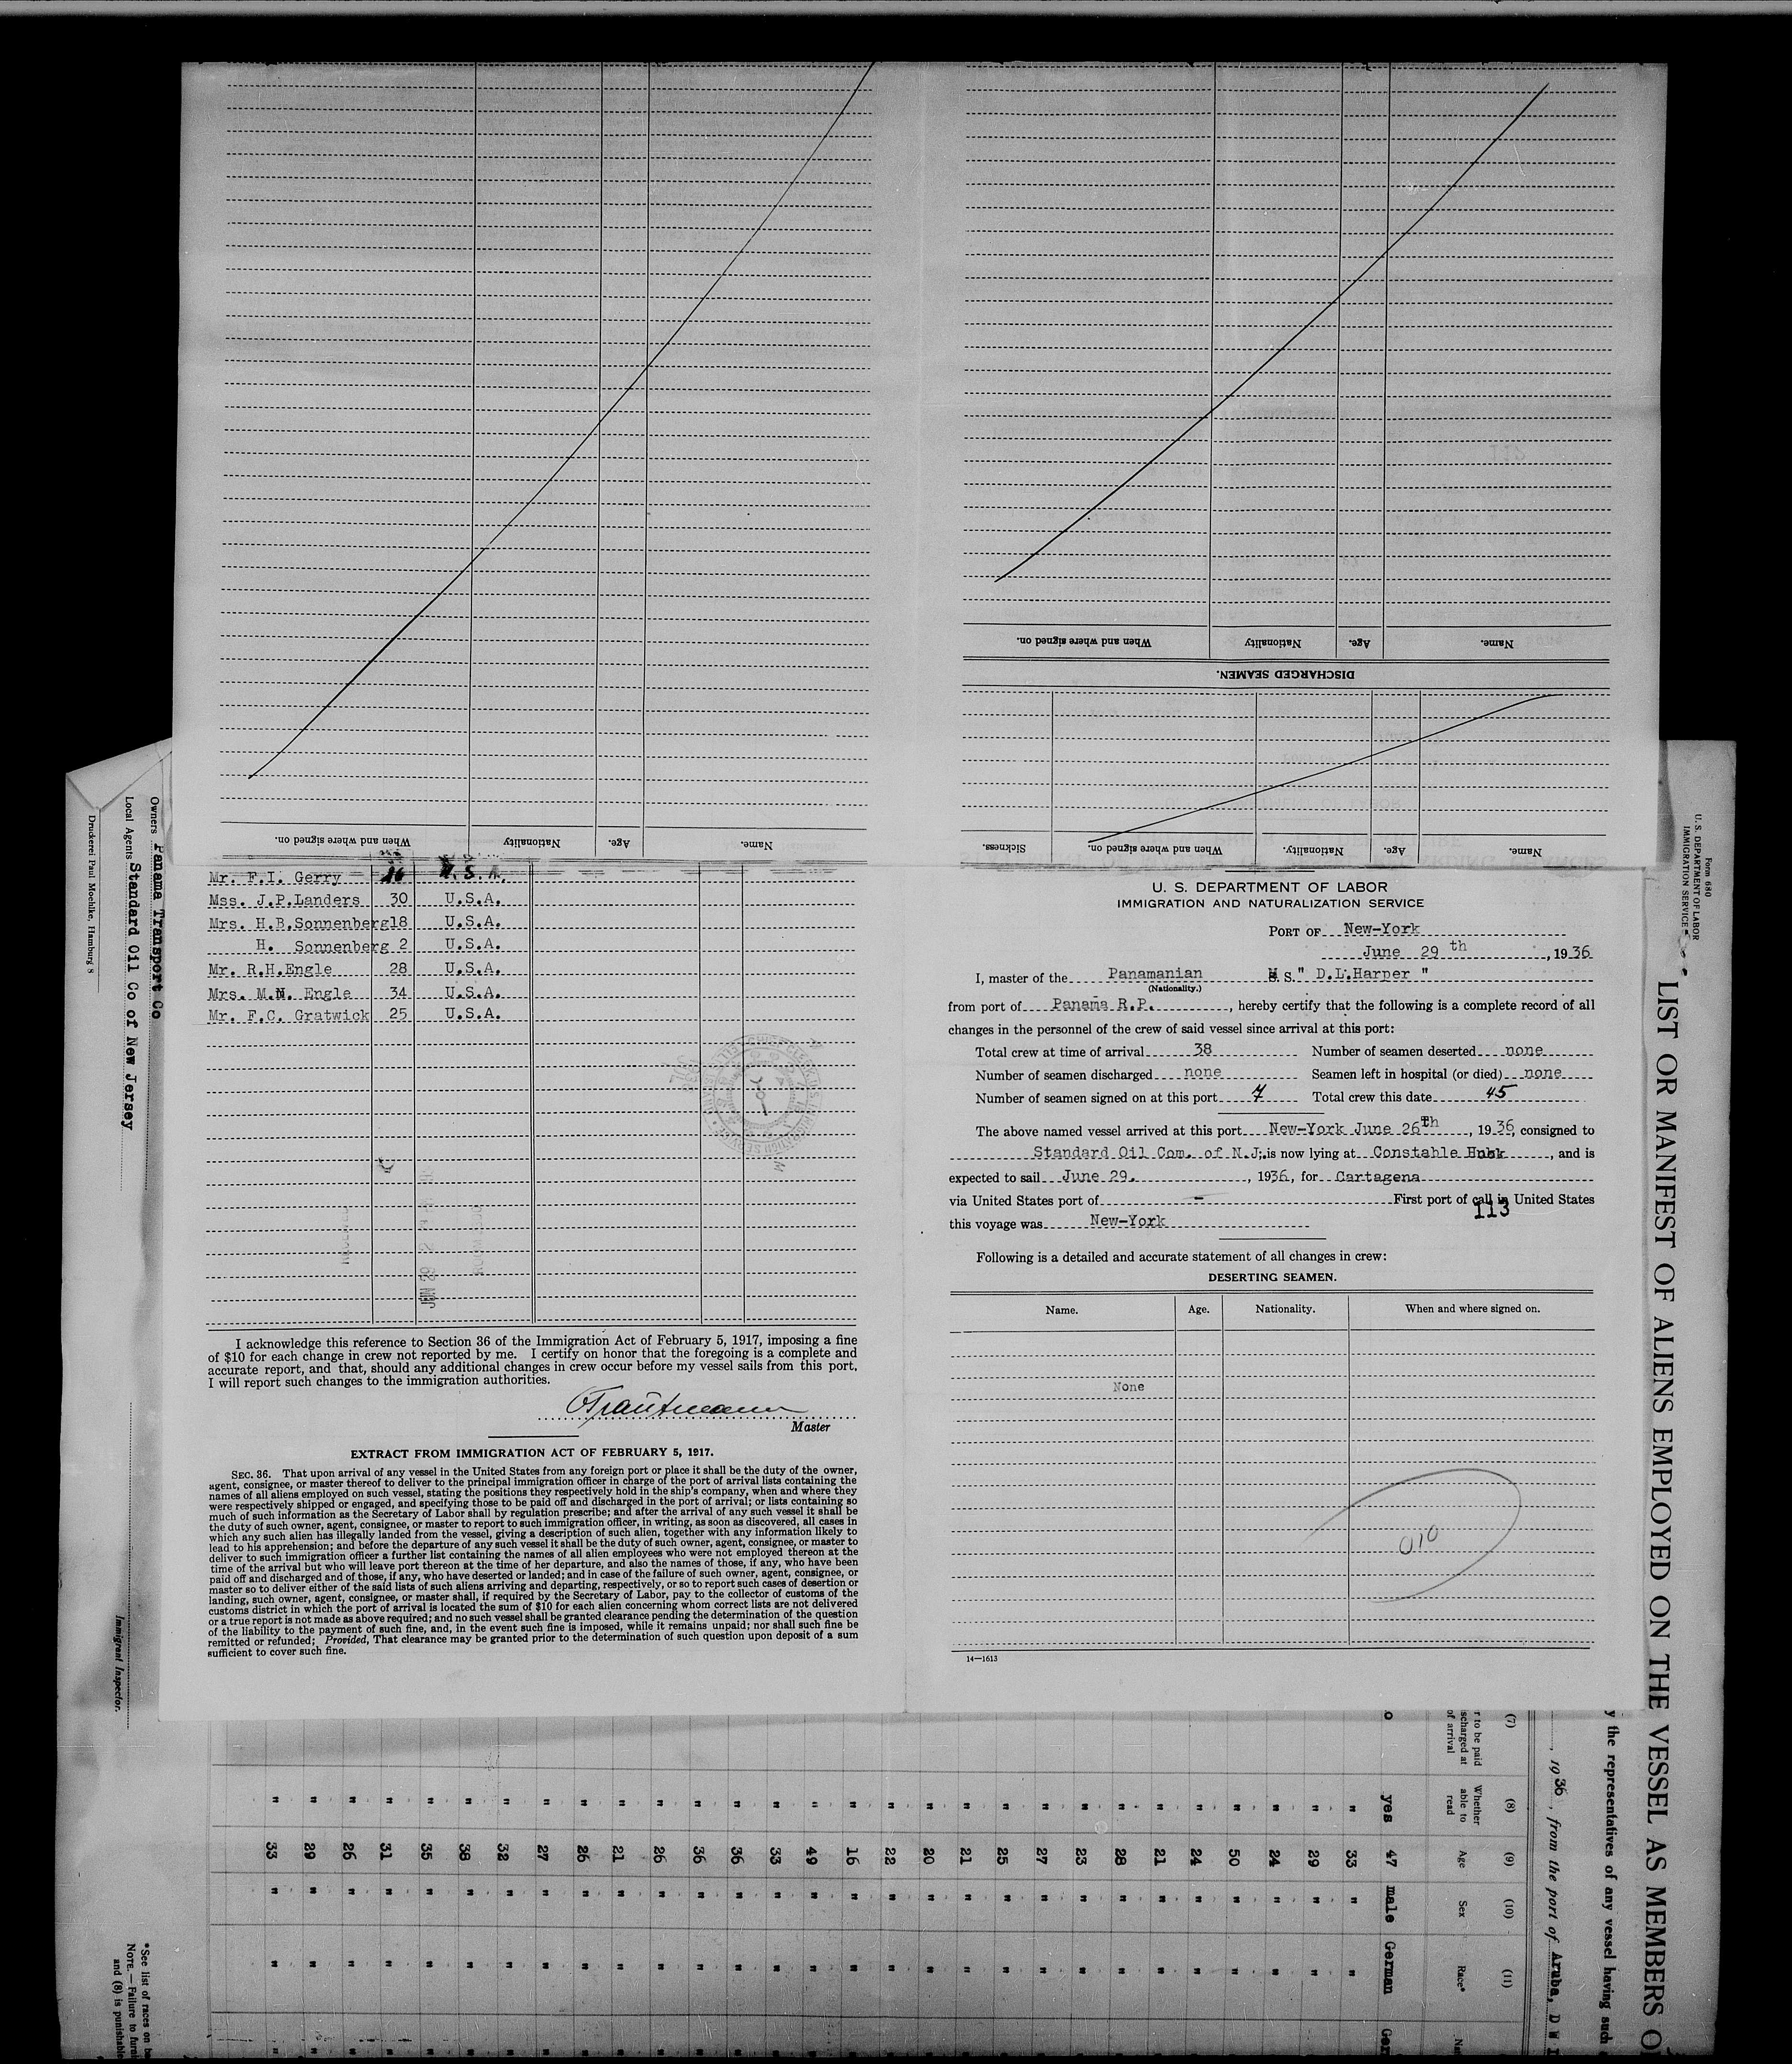 When and where signed on. Nationality Age. Name.
When and where signed on. Nationality Age. Name.
DISCHARGED SEAMEN.
Sickness. When and where signed on. Nationality. Age. Name.
Mr. F.I. Gerry 26 U.S.A.
Mss. J.P.Landers 30 U.S.A.
Mrs. H.B.Sonnenberg 18 U.S.A.
H. Sonnenberg 2 U.S.A.
Mr. R.H.Engle 28 U.S.A.
Mrs. M.N. Engle 34 U.S.A.
Mr. F.C. Gratwick 25 U.S.A.
JUN 29
I acknowledge this reference to Section 36 of the Immigration Act of February 5, 1917, imposing a fine
of $10 for each change in crew not reported by me. I certify on honor that the foregoing is a complete and
accurate report, and that, should any additional changes in crew occur before my vessel sails from this port,
I will report such changes to the immigration authorities.
Trautmann
Master
EXTRACT FROM IMMIGRATION ACT OF FEBRUARY 5, 1917.
SEC. 36. That upon arrival of any vessel in the United States from any foreign port or place it shall be the duty of the owner,
agent, consignee, or master thereof to deliver to the principal immigration officer in charge of the port of arrival lists containing the
names of all aliens employed on such vessel, stating the positions they respectively hold in the ship's company, when and where they
were respectively shipped or engaged, and specifying those to be paid off and discharged in the port of arrival; or lists containing so
much of such information as the Secretary of Labor shall by regulation prescribe; and after the arrival of any such vessel it shall be
the duty of such owner, agent, consignee, or master to report to such immigration officer, in writing, as soon as discovered, all cases in
which any such alien has illegally landed from the vessel, giving a description of such alien, together with any information likely to
lead to his apprehension; and before the departure of any such vessel it shall be the duty of such owner, agent, consignee, or master to
deliver to such immigration officer a further list containing the names of all alien employees who were not employed thereon at the
time of the arrival but who will leave port thereon at the time of her departure, and also the names of those, if any, who have been
paid off and discharged and of those, if any, who have deserted or landed; and in case of the failure of such owner, agent, consignee, or
master so to deliver either of the said lists of such aliens arriving and departing, respectively, or so to report such cases of desertion or
landing, such owner, agent, consignee, or master shall, if required by the Secretary of Labor, pay to the collector of customs of the
customs district in which the port of arrival is located the sum of $10 for each alien concerning whom correct lists are not delivered
or a true report is not made as above required; and no such vessel shall be granted clearance pending the determination of the question
of the liability to the payment of such fine, and, in the event such fine is imposed, while it remains unpaid; nor shall such fine be
remitted or refunded; Provided, That clearance may be granted prior to the determination of such question upon deposit of a sum
sufficient to cover such fine.
U. S. DEPARTMENT OF LABOR
IMMIGRATION AND NATURALIZATION SERVICE
PORT OF New-York
June 29 th, 1936
I, master of the Panamanian M S." D.L.Harper "
(Nationality.)
from port of Panama R.P., hereby certify that the following is a complete record of all
changes in the personnel of the crew of said vessel since arrival at this port:
Total crew at time of arrival 38 Number of seamen deserted none
Number of seamen discharged none Seamen left in hospital (or died) none
Number of seamen signed on at this port 7 Total crew this date 45
The above named vessel arrived at this port New-York June 26th, 1936, consigned to
Standard Oil Com. of N.J; is now lying at Constable Hook, and is
expected to sail June 29., 1936, for Cartagena
via United States port of - First port of call in United States
113
this voyage was New-York
Following is a detailed and accurate statement of all changes in crew:
DESERTING SEAMEN.
Name. Age. Nationality. When and where signed on.
None
010
14—1613
Owners Panama Transport Co
Local Agents Standard Oil Co of New Jersey
Immigrant Inspector.
Druckerei Paul Moehlke, Hamburg 8
*See list of races on b
NOTE.—Failure to furni
and (8) is punishable
Form 680
U. S. DEPARTMENT OF LABOR
IMMIGRATION SERVICE
LIST OR MANIFEST OF ALIENS EMPLOYED ON THE VESSEL AS MEMBERS O
y the representatives of any vessel having such
, 1936, from the port of Aruba, D W I
(7) (8) (9) (10) (11)
r to be paid
scharged at
of arrival
Whether
able to
read
Age
Sex
Race*
o yes 47 male German Ger
" 33 " "
" 29 " "
" 24 " "
" 50 " "
" 24 " "
" 21 " "
" 28 " "
" 23 " "
" 27 " "
" 25 " "
" 21 " "
" 20 " "
" 22 " "
" 16 " "
" 49 " "
" 33 " "
" 36 " "
" 36 " "
" 26 " "
" 21 " "
" 26 " "
" 27 " "
" 32 " "
" 38 " "
" 35 " "
" 31 " "
" 26 " "
" 29 " "
" 33 " "